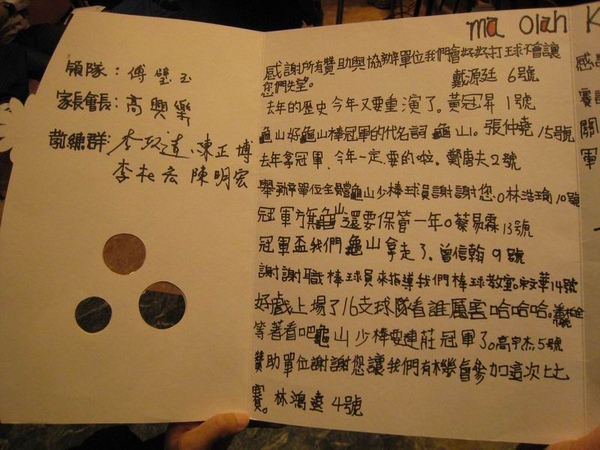 領隊：傅璧玉
家長會長：高興樂
教練群：李政達、陳正博
李柏宏 陳明宏
ma olah K
感謝所有贊助與協辦單位我們會好好打球不會讓
您們失望。 戴源廷 6號
去年的歷史今年又要重演了。黃冠昇 1號
龜山好龜山棒冠軍的代名詞 龜山。張仲堯 15號
去年拿冠軍，今年一定要的啦。鄭唐夫 2號
舉辦單位全體龜山少棒球員謝謝您。林浩瑜 10號
冠軍旗龜山還要保管一年。蔡易霖 13號
冠軍盃我們龜山拿走了。曾信翰 9號
謝謝職棒球員來指導我們棒球教室。 14號
好戲上場了16支球隊看誰厲害哈哈哈。
等著看吧龜山少棒要連莊冠軍了。高宇杰 5號
贊助單位謝謝您讓我們有機會參加這次比
賽。林鴻遠 4號
感
賽
關
軍